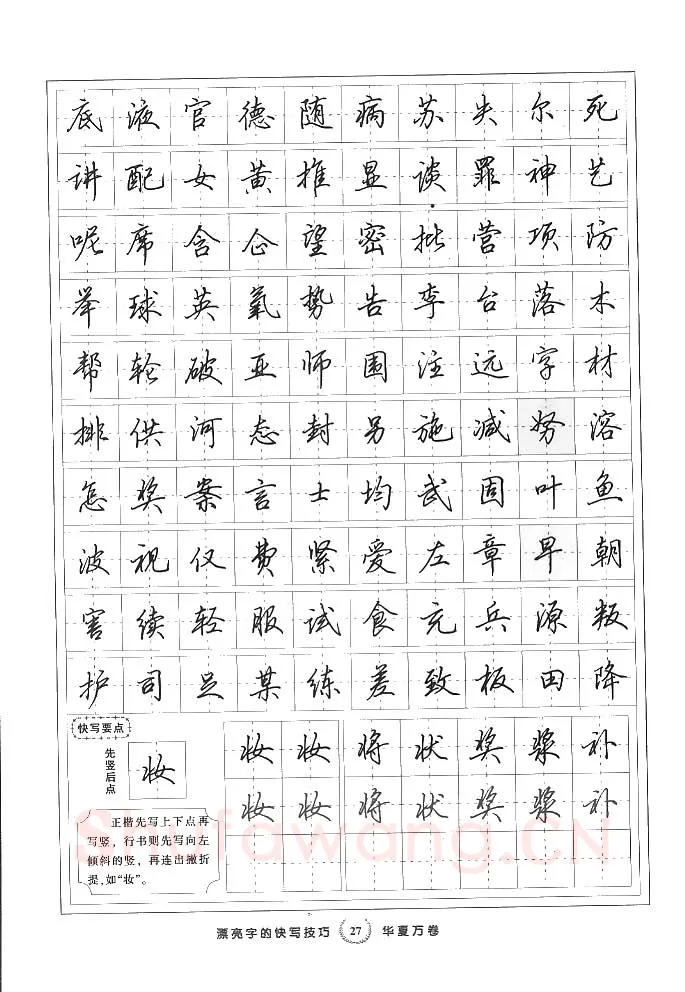 底液官德随病苏失尔死
讲配女黄推显谈罪神艺
呢席含企望密批营项防
举球英氧势告李台落木
帮轮破亚师围注远字材
排供河态封另施减努溶
怎奖案言士均武固叶鱼
波视仅费紧爱左章早朝
害续轻服试食充兵源叛
护司足某练差致板田降
快写要点
先竖后点
妆
妆妆将状奖浆补
妆妆将状奖浆补
正楷先写上下点再
写竖，行书则先写向左
倾斜的竖，再连出撇折
提，如“妆”。
Shufawang.CN
漂亮字的快写技巧 27 华夏万卷